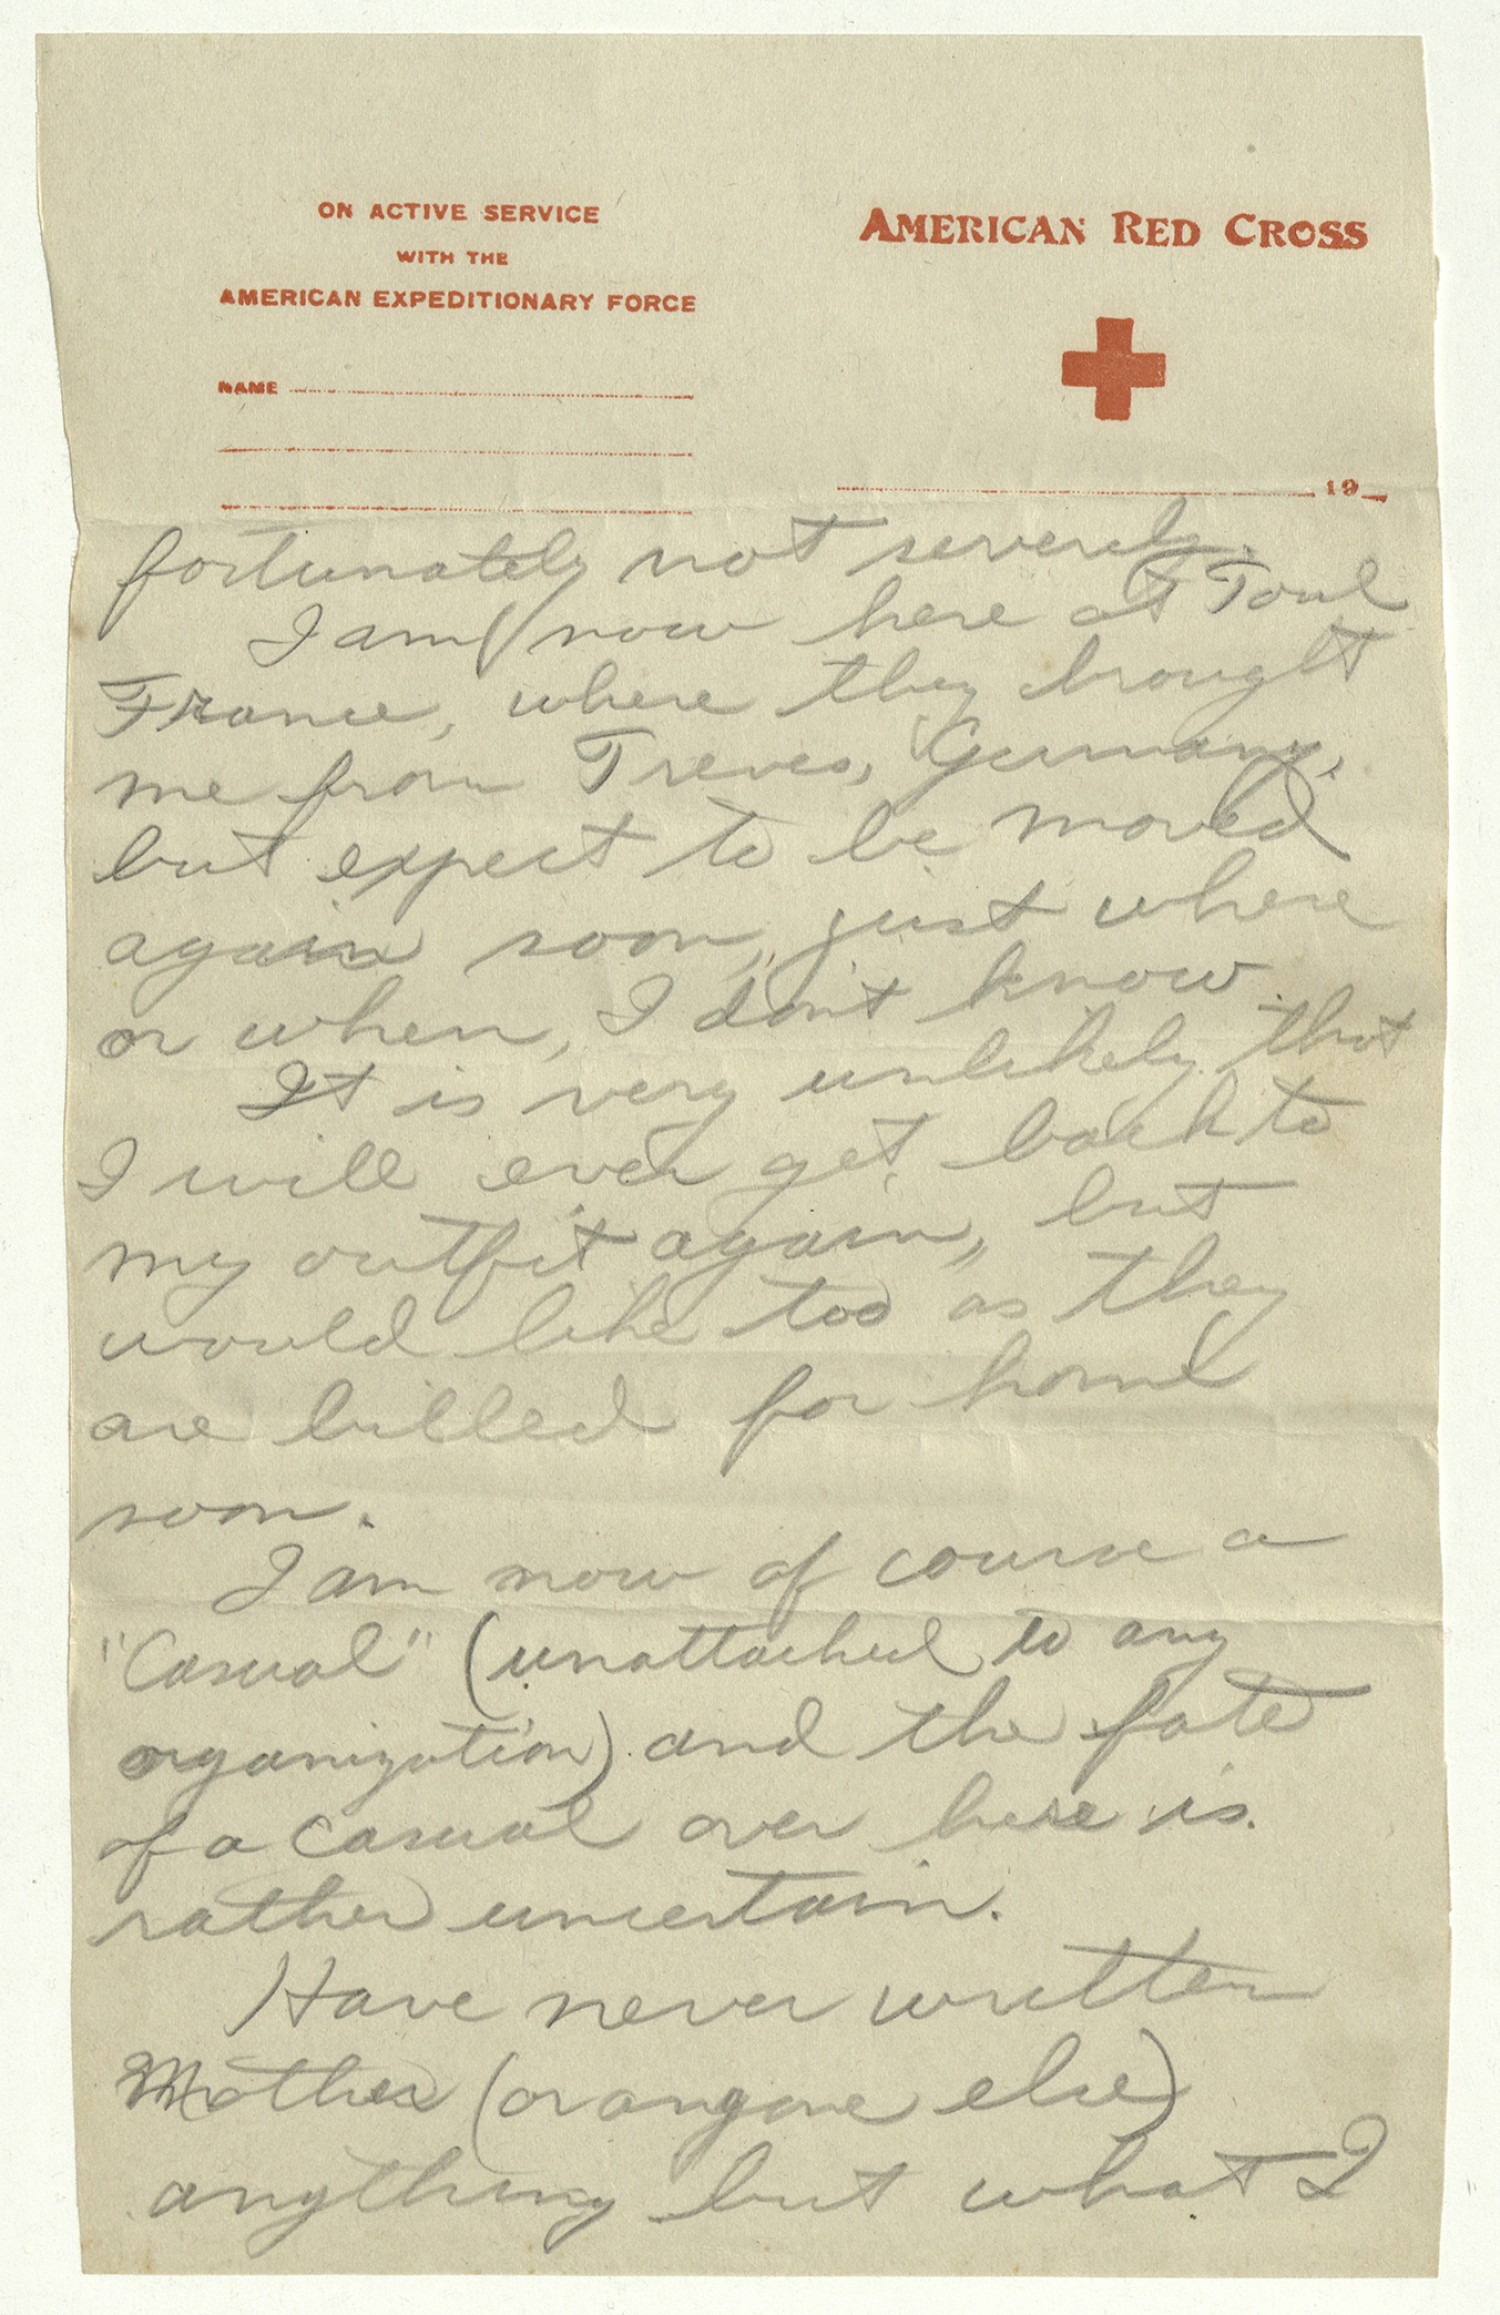 ON ACTIVE SERVICE
WITH THE
AMERICAN EXPEDITIONARY FORCE
NAME
AMERICAN RED CROSS
19
fortunately not severely.
I am now here at Toul
France, where they brought
me from Treves, Germany,
but expect to be moved
again soon, just where
or when, I don't know.
It is very unlikely that
I will ever get back to
my outfit again, but
would like too as they
are billed for home
soon.
I am now of course a
"Casual" (unattached to any
organization) and the fate
of a casual over here is
rather uncertain.
Have never written
Mother (or anyone else)
anything but what I